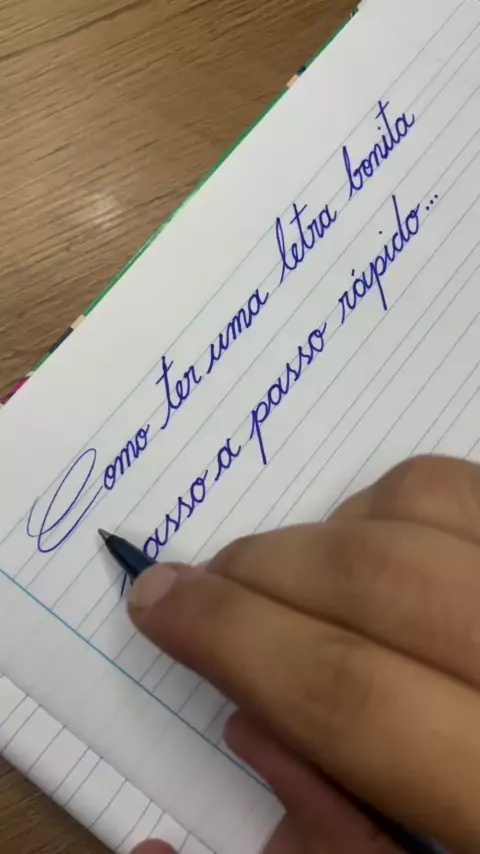 Como ter uma letra bonita
passo a passo rápido...